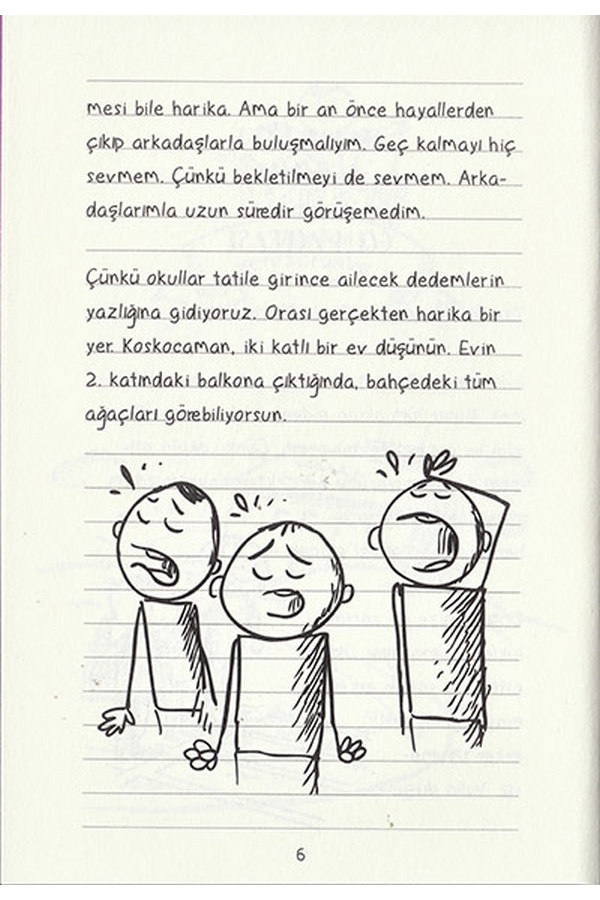 mesi bile harika. Ama bir an önce hayallerden
çıkıp arkadaşlarla buluşmalıyım. Geç kalmayı hiç
sevmem. Çünkü bekletilmeyi de sevmem. Arka-
daşlarımla uzun süredir görüşemedim.
Çünkü okullar tatile girince ailecek dedemlerin
yazlığına gidiyoruz. Orası gerçekten harika bir
yer. Koskocaman, iki katlı bir ev düşünün. Evin
2. katındaki balkona çıktığında, bahçedeki tüm
ağaçları görebiliyorsun.
6